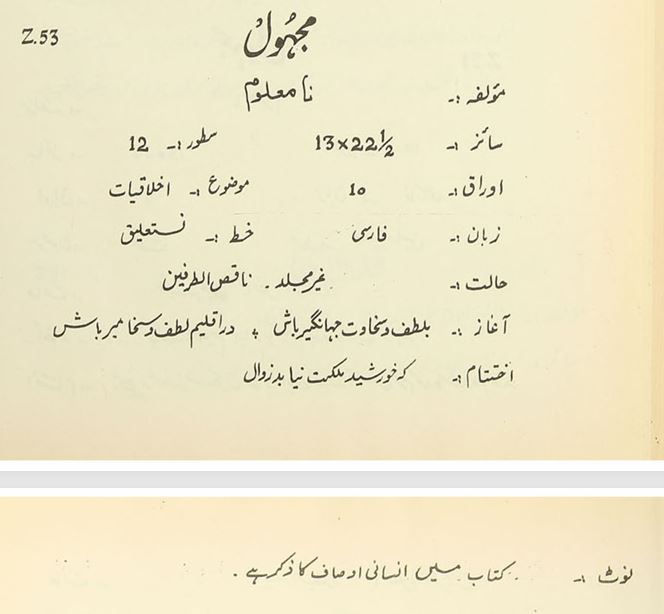 Z.53
مجہُول
مؤلفہ :۔ نا معلوم
سائز :۔ 13×22½ سطور :۔ 12
اوراق :۔ 10 موضوع :۔ اخلاقیات
زبان :۔ فارسی خط :۔ نستعلیق
حالت :۔ غیر مجلد ۔ ناقص الطرفین
آغاز :۔ بلطف و سخاوت جہانگیر باش ؞ در اقلیم لطف و سخا میر باش
اختتام :۔ کہ خورشید ملکت نیا بد زوال
نوٹ :۔ کتاب میں انسانی اوصاف کا ذکر ہے ۔